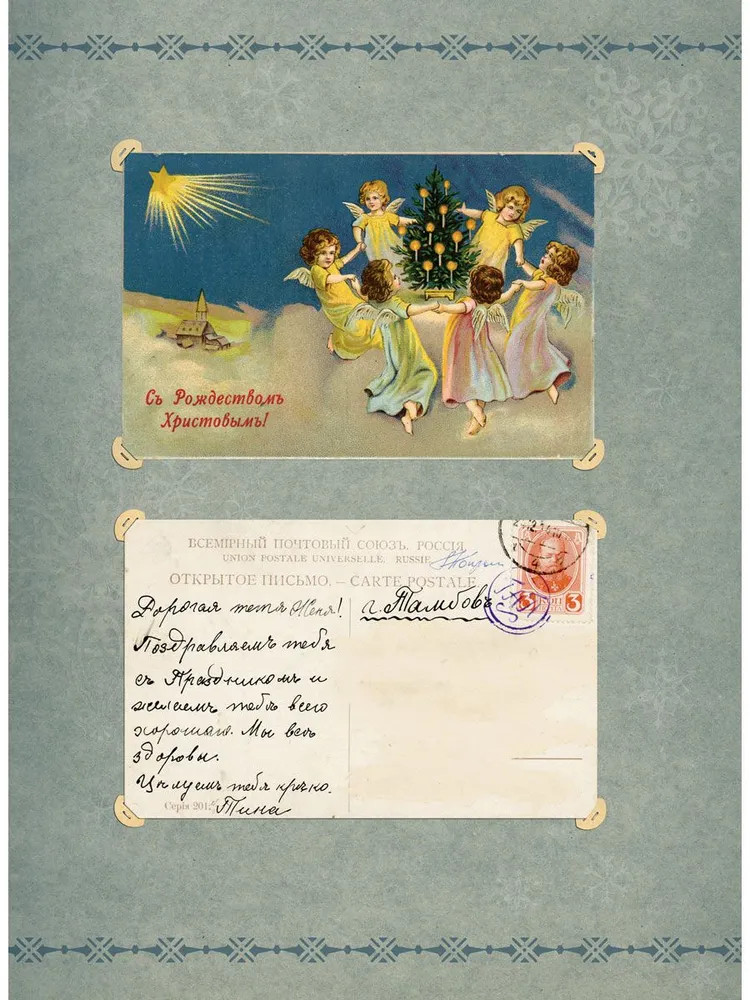 Съ Рождествомъ
Христовымъ!
ВСЕМІРНЫЙ ПОЧТОВЫЙ СОЮЗЪ. РОССІЯ
UNION POSTALE UNIVERSELLE. RUSSIE
ОТКРЫТОЕ ПИСЬМО. – CARTE POSTALE
Дорогая тетя Женя!
г. Тамбовъ
Поздравляемъ тебя
съ Праздникомъ и
желаемъ тебѣ всего
хорошаго. Мы всѣ
здоровы.
Цѣлуемъ тебя крѣпко.
Серія 201
Тина
3 КОП 3